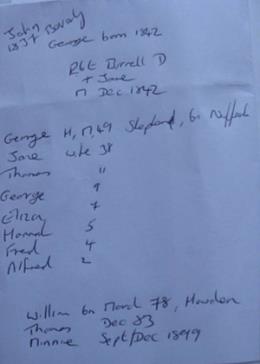 John
1837 George born 1842
R&E Burrell D
+ Jane
M Dec 1842
George H, M, 49 Shepherd, bn
Jane wife 38
Thomas "
George 9
Eliza 7
Hannah 5
Fred 4
Alfred 2
William bn March 78, Howden
Thomas Dec 83
Minnie Sept/Dec 18